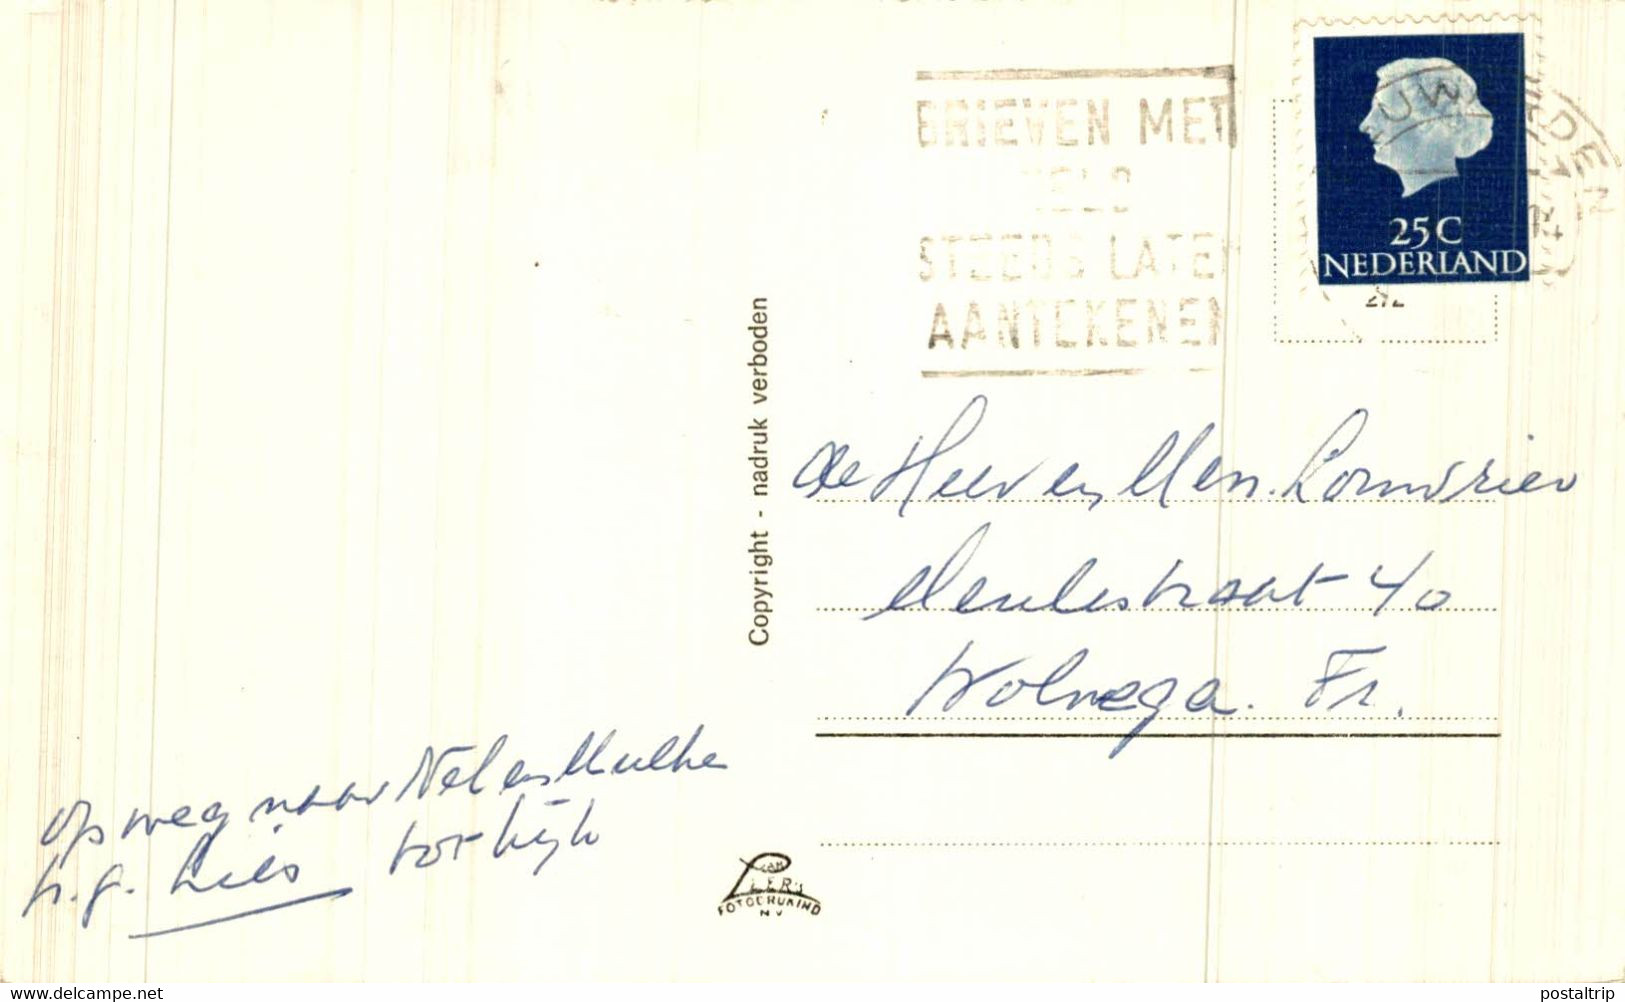 BRIEVEN MET
GELD
STEEDS LATEN
AANTEKENEN
25C
NEDERLAND
Copyright - nadruk verboden
de Heer en Men. Lomdrier
Meulestraat 40
Wolvega. Fr.
op weg naar Nel en
h.g. Lies tot kijk
FOTODRUKIND
N V
delcampe.net
postaltrip